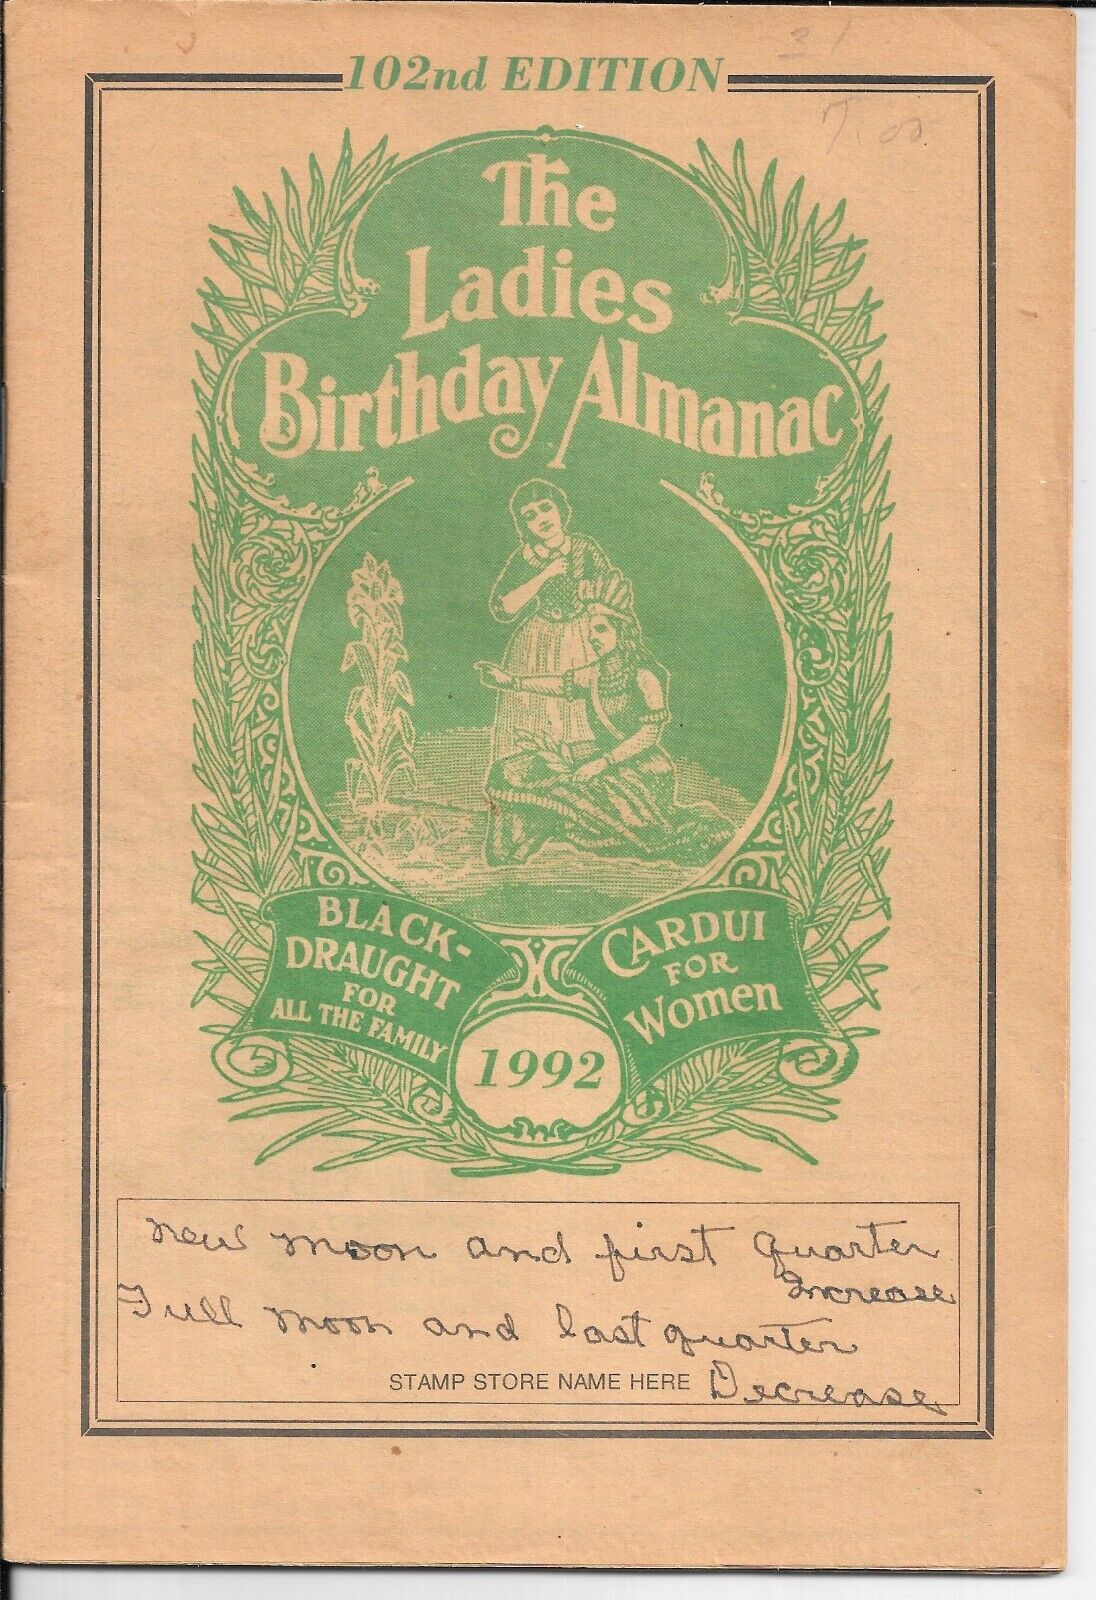 31
102nd EDITION
The
Ladies
Birthday Almanac
BLACK-
DRAUGHT
FOR
ALL THE FAMILY
CARDUI
FOR
Women
1992
new moon and first quarter
Increase
Full moon and last quarter
STAMP STORE NAME HERE Decrease